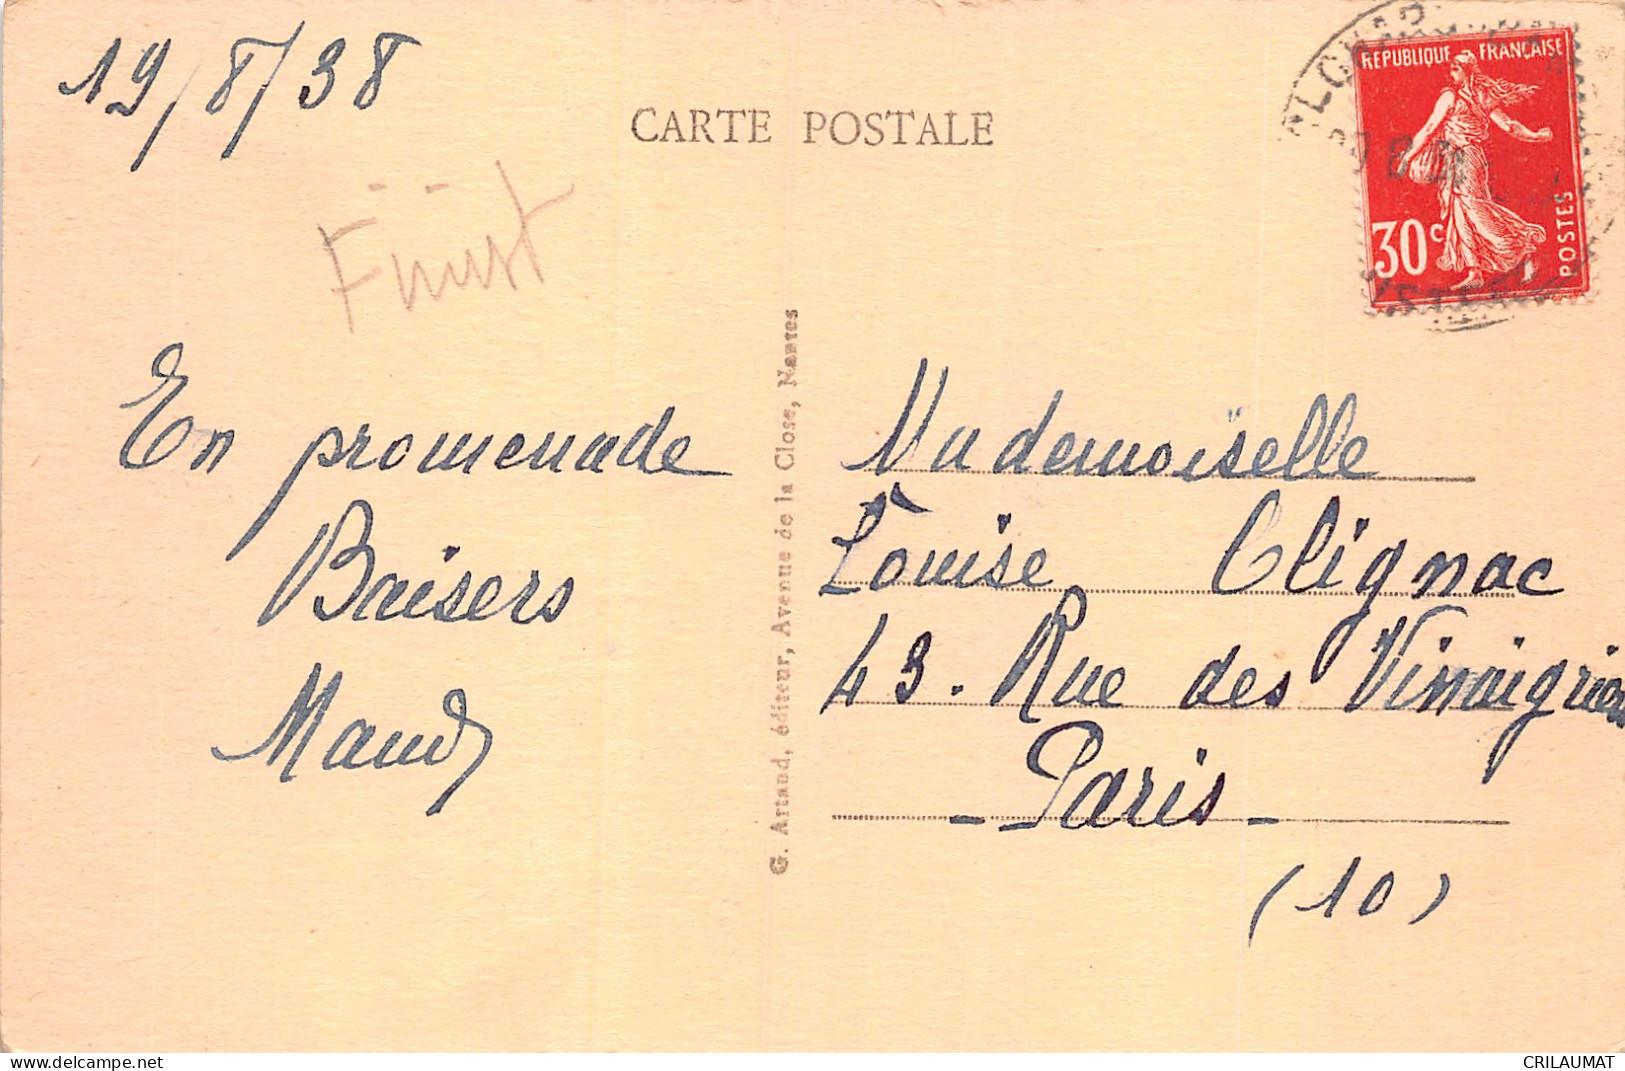 19/8/38
CARTE POSTALE
REPUBLIQUE FRANÇAISE
30c
POSTES
En promenade
Baisers
Maud
G. Artaud, éditeur, Avenue de la Close, Nantes
Mademoiselle
Louise Clignac
43. Rue des Vinaigriers
- Paris -
(10)
delcampe.net
CRILAUMAT